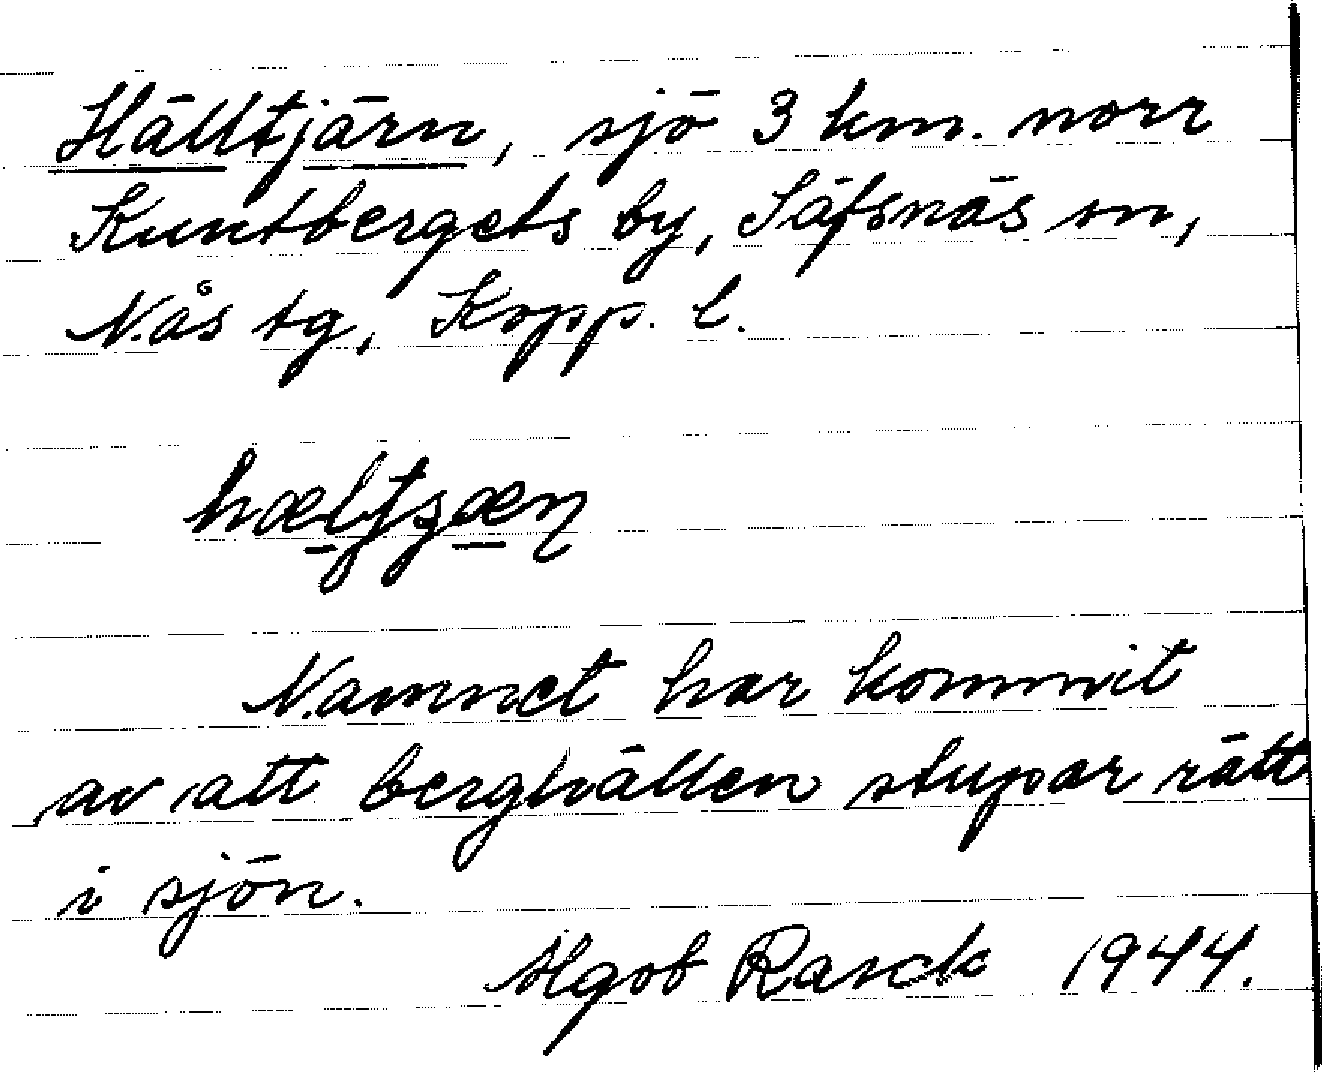 Hälltjärn, sjö 3 km. norr
Kuntbergets by, Säfsnäs sn,
Nås tg, Kopp. l.
Namnet har kommit
av att berghällen stupar rätt
i sjön.
1944.